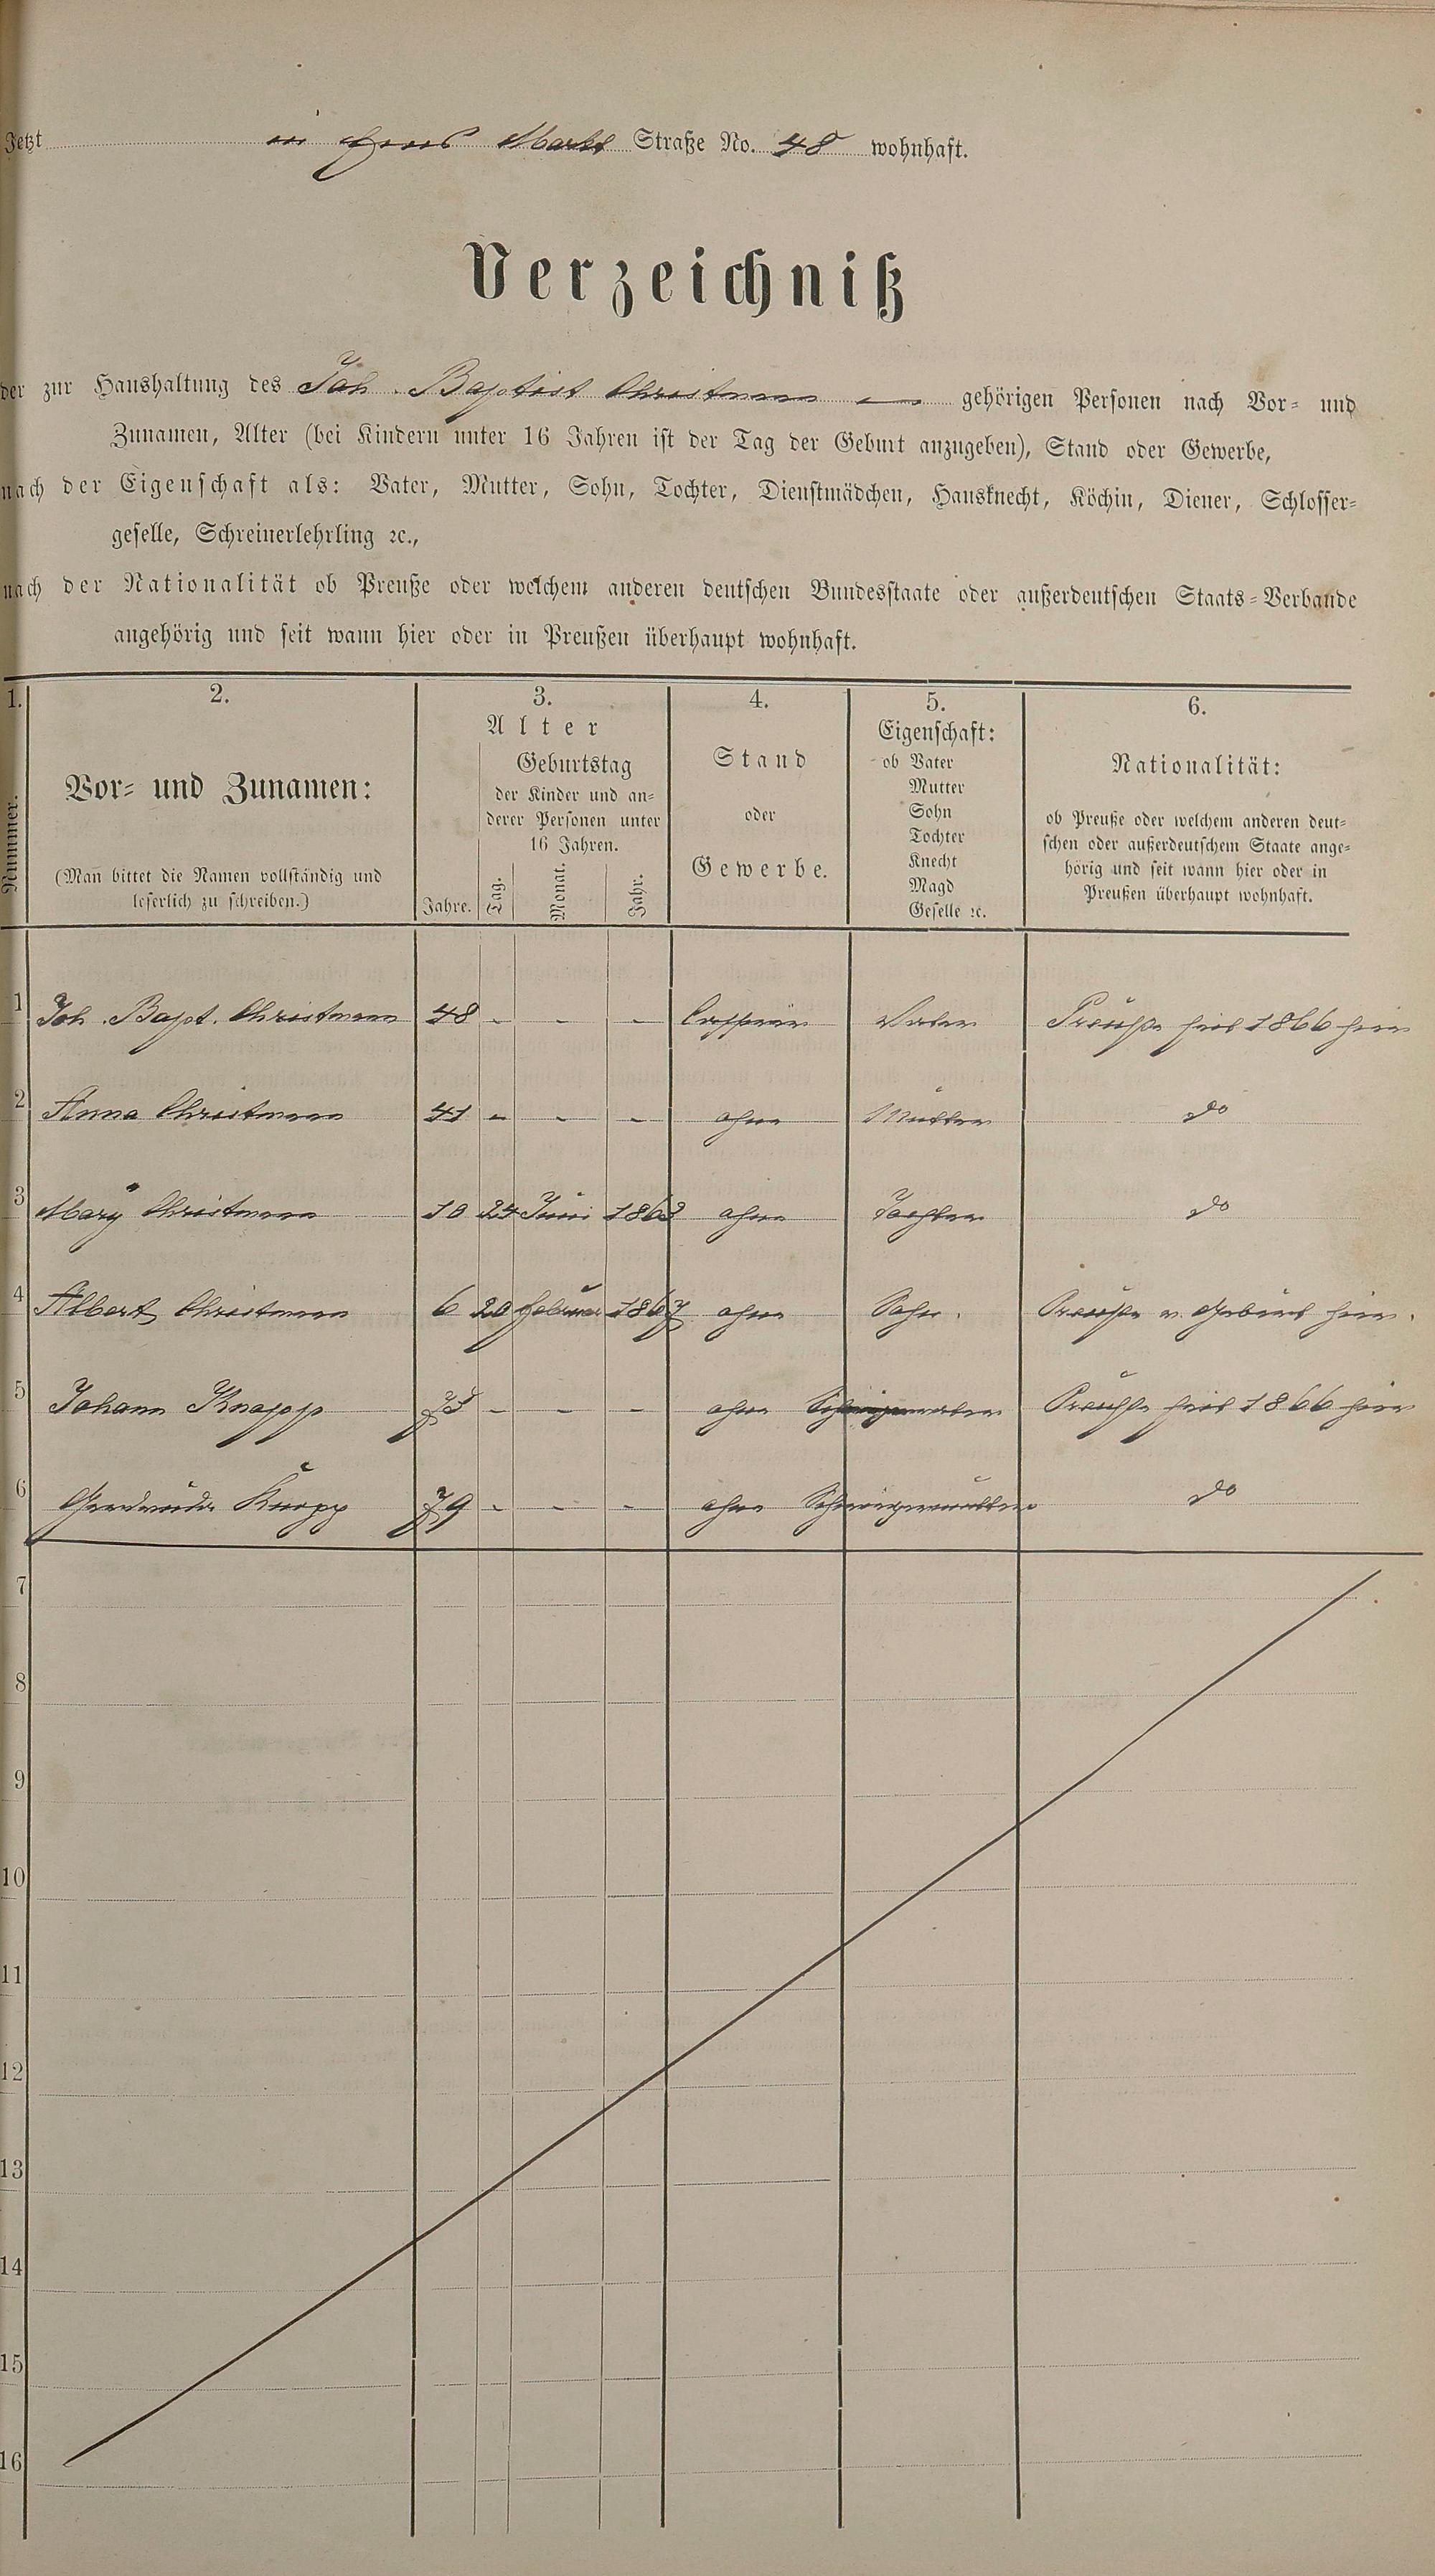 Jetzt in Ems Markt Straße No. 48 wohnhaft.
Verzeichniß
der zur Haushaltung des Joh. Baptist Christmann gehörigen Personen nach Vor- und
Zunamen, Alter (bei Kindern unter 16 Jahren ist der Tag der Geburt anzugeben), Stand oder Gewerbe,
nach der Eigenschaft als: Vater, Mutter, Sohn, Tochter, Dienstmädchen, Hausknecht, Köchin, Diener, Schlosser-
geselle, Schreinerlehrling ꝛc.,
nach der Nationalität ob Preuße oder welchem anderen deutschen Bundesstaate oder außerdeutschen Staats-Verbande
angehörig und seit wann hier oder in Preußen überhaupt wohnhaft.
1. 2. 3. 4. 5. 6.
Nummer.
Vor- und Zunamen:
(Man bittet die Namen vollständig und
leserlich zu schreiben.)
Alter
Jahre.
Geburtstag
der Kinder und an-
derer Personen unter
16 Jahren.
Tag. Monat. Jahr.
Stand
oder
Gewerbe.
Eigenschaft:
ob Vater
Mutter
Sohn
Tochter
Knecht
Magd
Geselle ꝛc.
Nationalität:
ob Preuße oder welchem anderen deut-
schen oder außerdeutschem Staate ange-
hörig und seit wann hier oder in
Preußen überhaupt wohnhaft.
1 Joh. Bapt. Christmann 48 - - - Vater Preuße seit 1866 hier
2 Anna Christmann 41 - - - ohne Mutter do
3 Mary Christmann 10 24 Juni 1863 ohne Tochter do
4 Albert Christmann 6 20 Februar 1867 ohne Sohn. Preuße v. Geburt hier.
5 Johann Knapp - - - ohne Schwiegervater Preuße seit 1866 hier
6 Gertrude Knapp 79 - - - ohne Schwiegermutter do
7
8
9
10
11
12
13
14
15
16